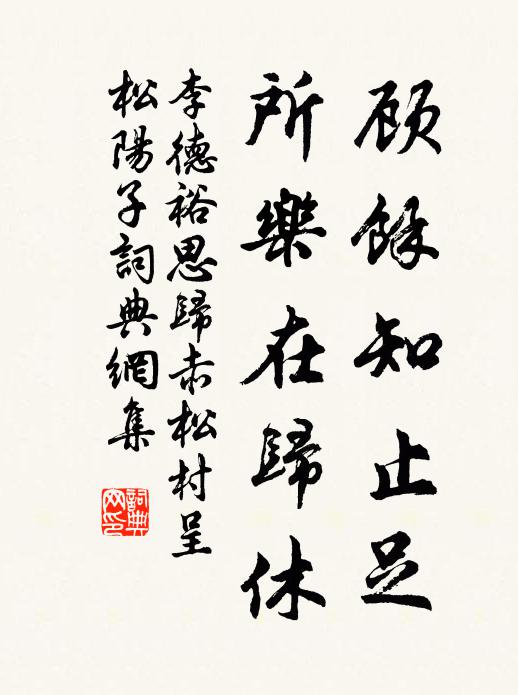 顾餘知止足
所樂在歸休
李德裕思歸赤松村呈
松陽子詞典網集
詞典
网印